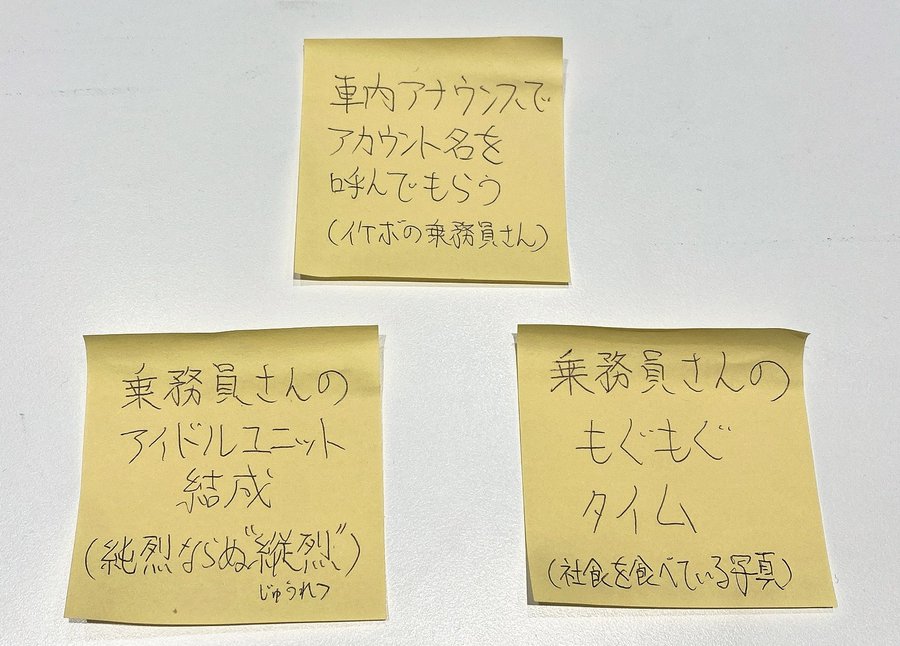 車内アナウンスで
アカウント名を
呼んでもらう
(イケボの乗務員さん)
乗務員さんの
アイドルユニット
結成
(純烈ならぬ"縦烈")
じゅうれつ
乗務員さんの
もぐもぐ
タイム
(社食を食べている写真)